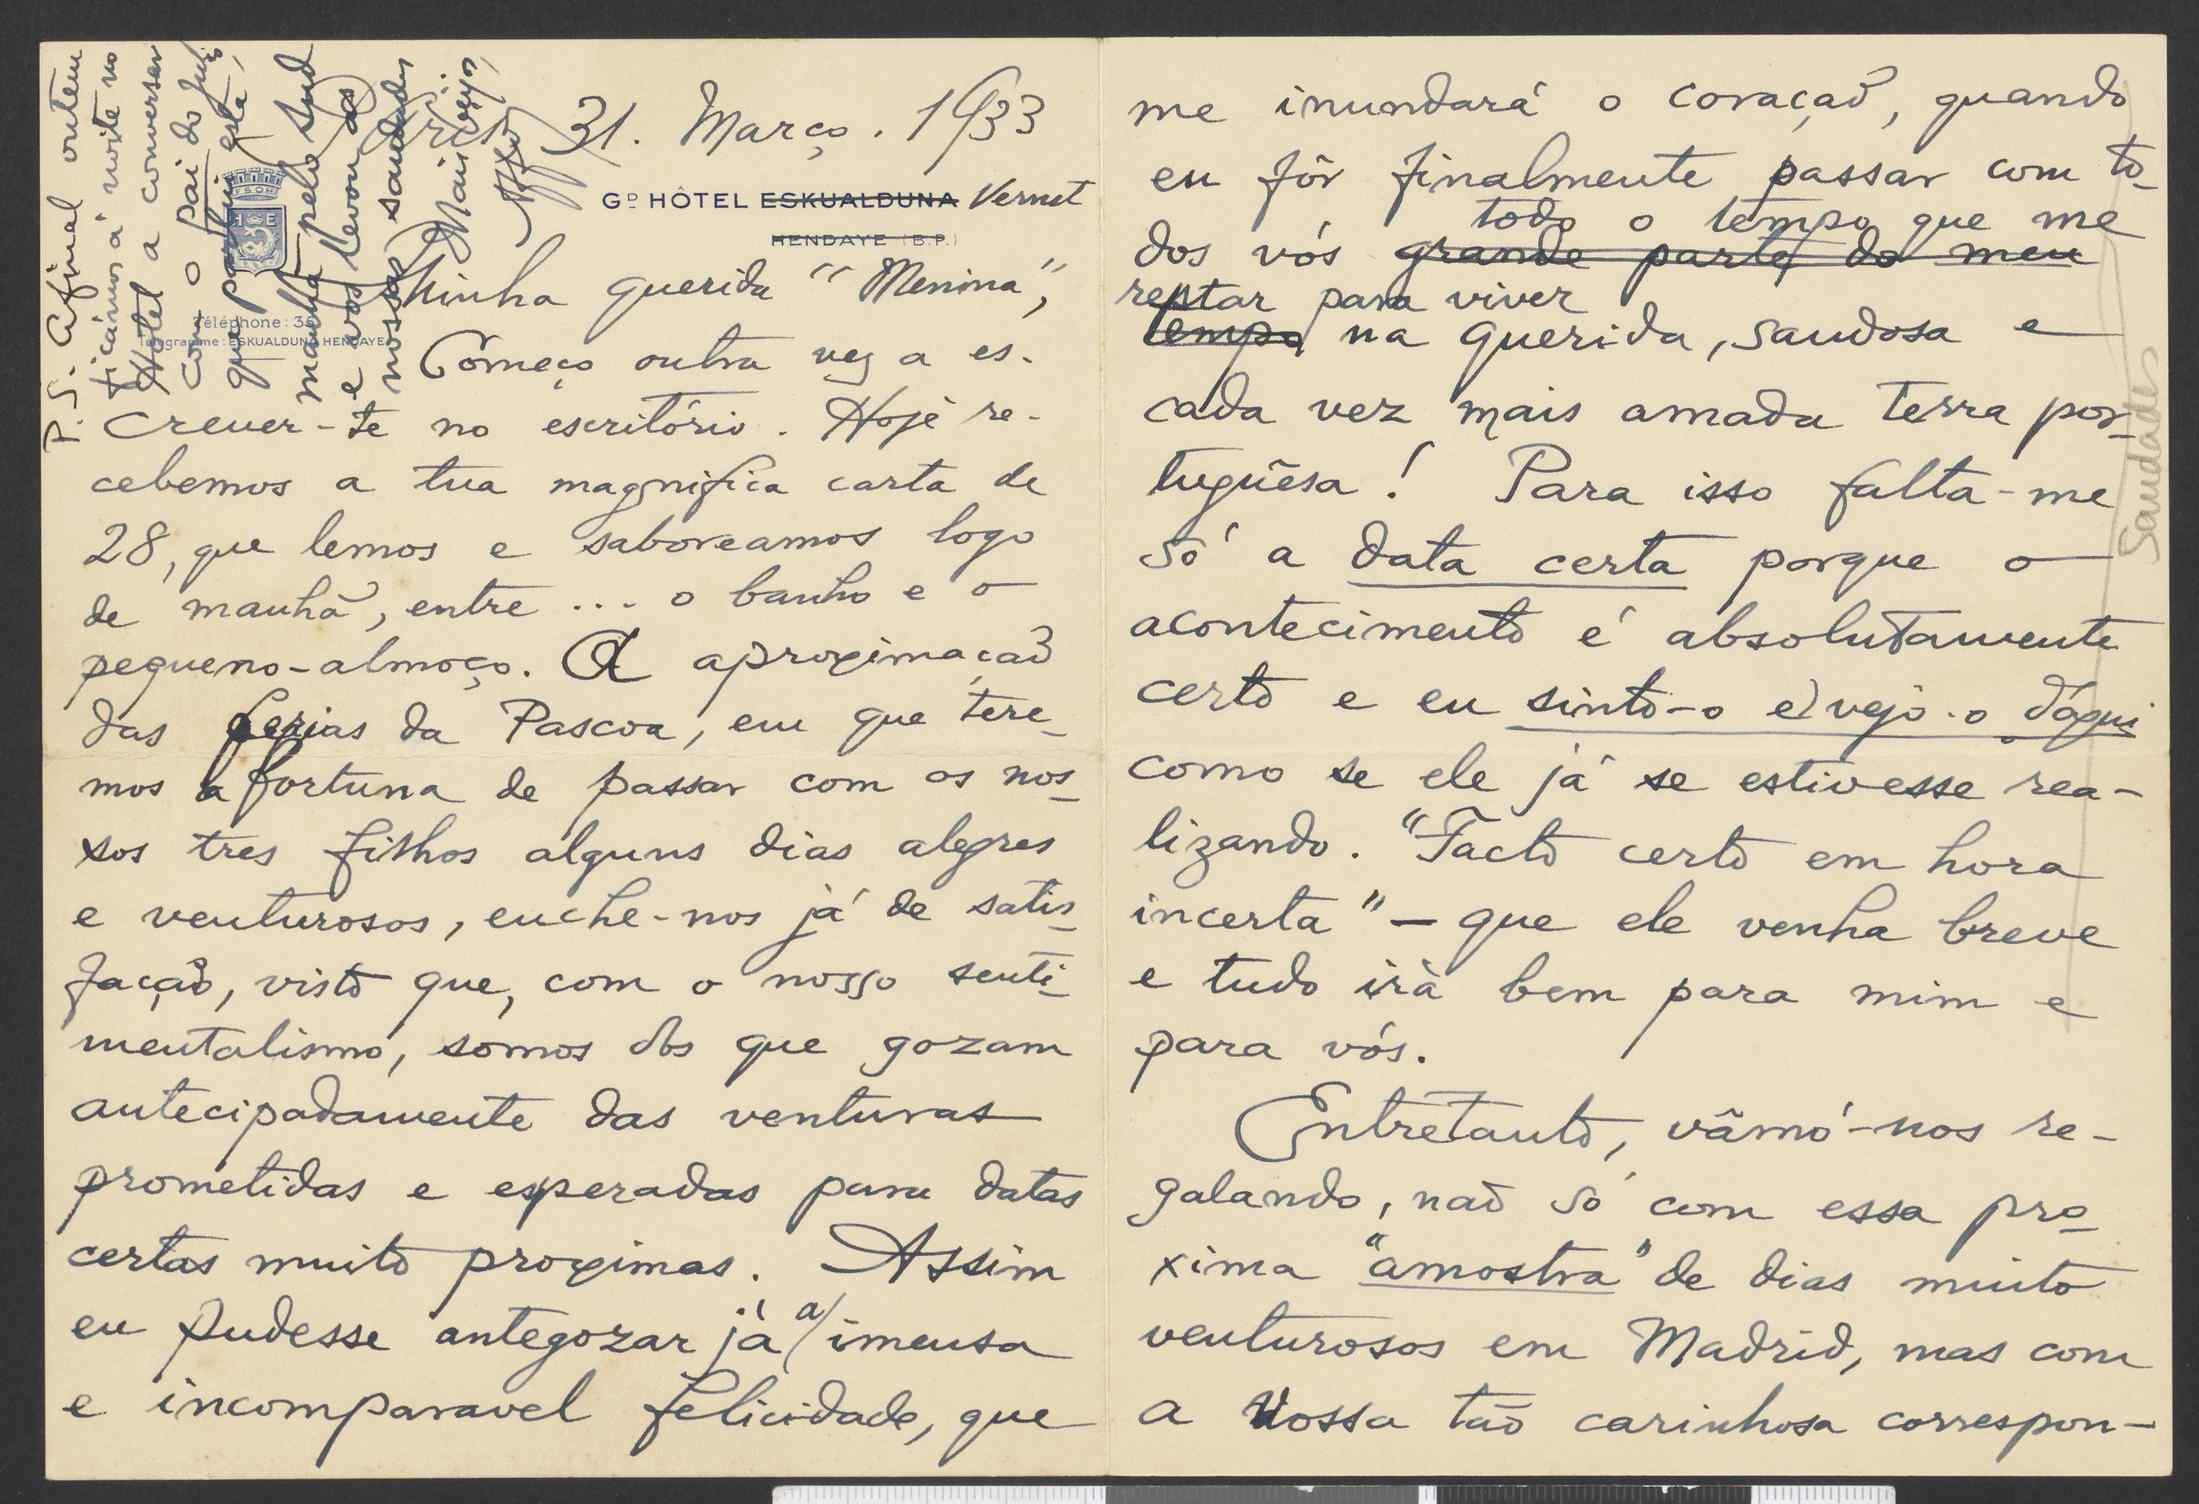 P.S. Afinal ontem
ficámos á noite no
Hotel a conversar
com o pai do
que partiu esta
manhã pelo Sud
e vos levou as
nossas saudades
Mais beijos
31. Março. 1933
Gᴅ HÔTEL ESKUALDUNA Vernet
HENDAYE (B.P.)
Téléphone: 35
Télégramme: ESKUALDUNA HENDAYE
Minha querida "Menina",
Começo outra vez a es-
crever-te no escritório. Hoje re-
cebemos a tua magnifica carta de
28, que lemos e saboreamos logo
de manhã, entre ... o banho e o
pequeno-almoço. A aproximação
das ferias da Pascoa, em que tere-
mos a fortuna de passar com os nos-
sos tres filhos alguns dias alegres
e venturosos, enche-nos já de satis-
fação, visto que, com o nosso senti-
mentalismo, somos dos que gozam
antecipadamente das venturas
prometidas e esperadas para datas
certas muito proximas. Assim
eu pudesse antegozar já a imensa
e incomparavel felicidade, que
me inundará o coração, quando
eu fôr finalmente passar com to-
todo o tempo que me
dos vós grande parte do meu
restar para viver
tempo na querida, saudosa e
cada vez mais amada terra por-
tuguêsa! Para isso falta-me
só a data certa porque o
acontecimento é absolutamente
certo e eu sinto-o e vejo-o dáqui
como se ele já se estivesse rea-
lizando. "Facto certo em hora
incerta" - que ele venha breve
e tudo irà bem para mim e
para vós.
Entretanto, vâmó-nos re-
galando, não só com essa pro-
xima "amostra" de dias muito
venturosos em Madrid, mas com
a Vossa tão carinhosa correspon-
Saudades